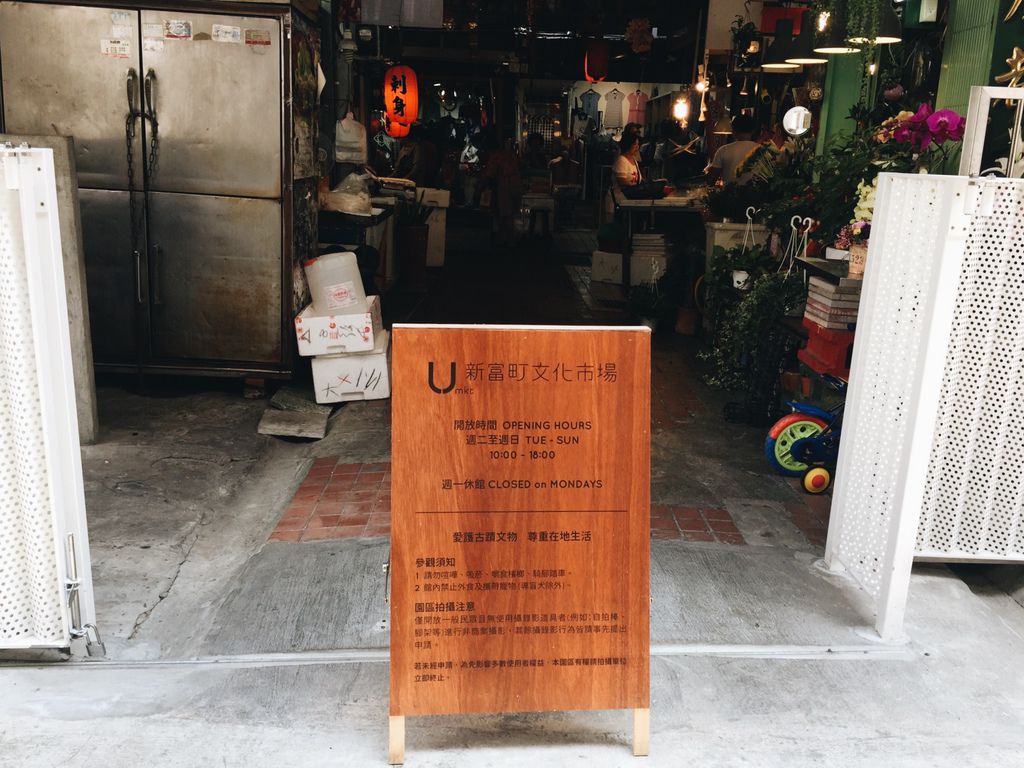 刺身
U mkt 新富町文化市場
開放時間 OPENING HOURS
週二至週日 TUE - SUN
10:00 - 18:00
週一休館 CLOSED on MONDAYS
愛護古蹟文物 尊重在地生活
參觀須知
1 請勿喧嘩、吸菸、嚼食檳榔、騎腳踏車。
2 館內禁止外食及攜帶寵物(導盲犬除外)。
園區拍攝注意
僅開放一般民眾且無使用攝錄影道具者(例如：自拍棒、
腳架等)進行非商業攝影，其餘攝錄影行為皆請事先提出
申請。
若未經申請，為免影響多數使用者權益，本園區有權請拍攝單位
立即終止。